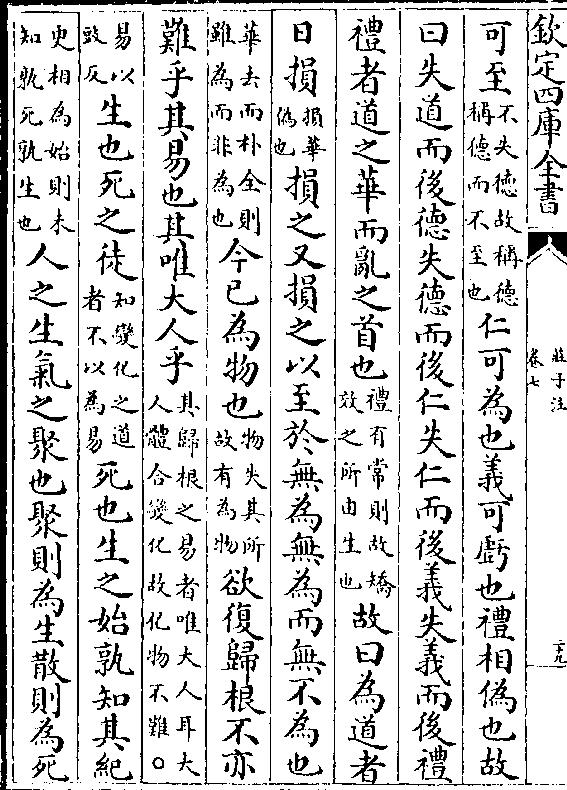 欽定四庫全書
莊子注
卷七
二十九
可至不失德故稱德稱德而不至也仁可為也義可虧也禮相偽也故
曰失道而後德失德而後仁失仁而後義失義而後禮
禮者道之華而亂之首也禮有常則故矯效之所由生也故曰為道者
日損損華偽也損之又損之以至於無為無為而無不為也
華去而朴全則雖為而非為也今已為物也物失其所故有為物欲復歸根不亦
難乎其易也其唯大人乎其歸根之易者唯大人耳大人體合變化故化物不難○
易以豉反生也死之徒知變化之道者不以為易死也生之始孰知其紀
更相為始則未知孰死孰生也人之生氣之聚也聚則為生散則為死